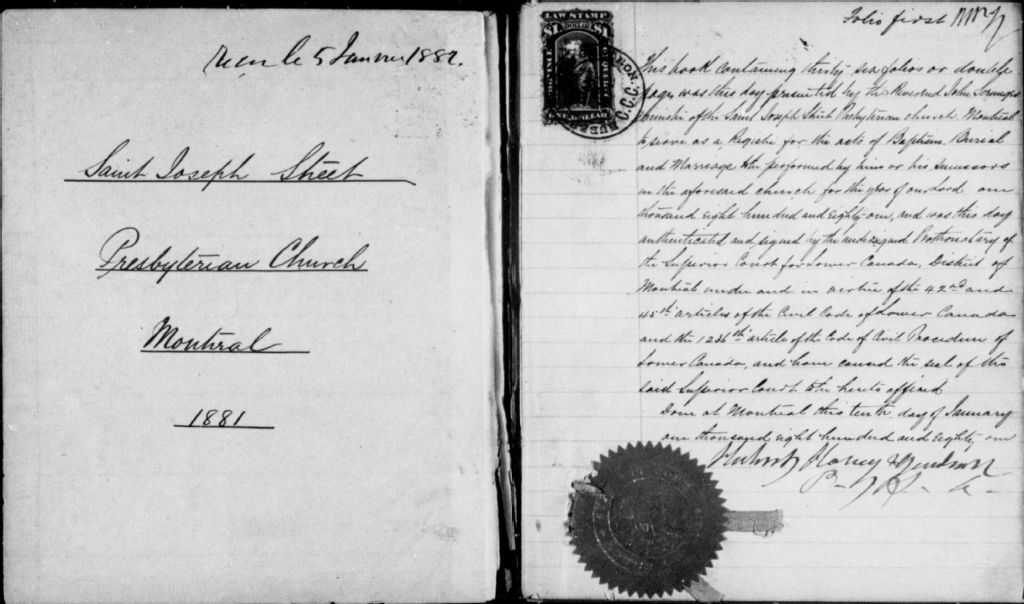 le 5 Janvier 1882.
Saint Joseph Street
Presbyterian Church
Montreal
1881
LAW STAMP
$1 DOLLAR $1
ONE DOLLAR
C.C.C.
Folio first
This book containing thirty six folios or double
pages was this day presented by the Reverend John
of the Saint Joseph Street Presbyterian church Montreal
to serve as a Register for the acts of Baptism, Burial
and Marriage to be performed by him or his successors
in the aforesaid church for the year of our Lord one
thousand eight hundred and eighty one, and was this day
authenticated and signed by the undersigned Prothonotary of
the Superior Court for Lower Canada, District of
Montreal under and in virtue of the 42nd and
45th articles of the Civil Code of Lower Canada
and the 1236th article of the Code of Civil Procedure of
Lower Canada, and have caused the seal of the
said Superior Court to be hereto affixed
Done at Montreal this tenth day of January
one thousand eight hundred and Eighty one
Hubert Honey & Gendron